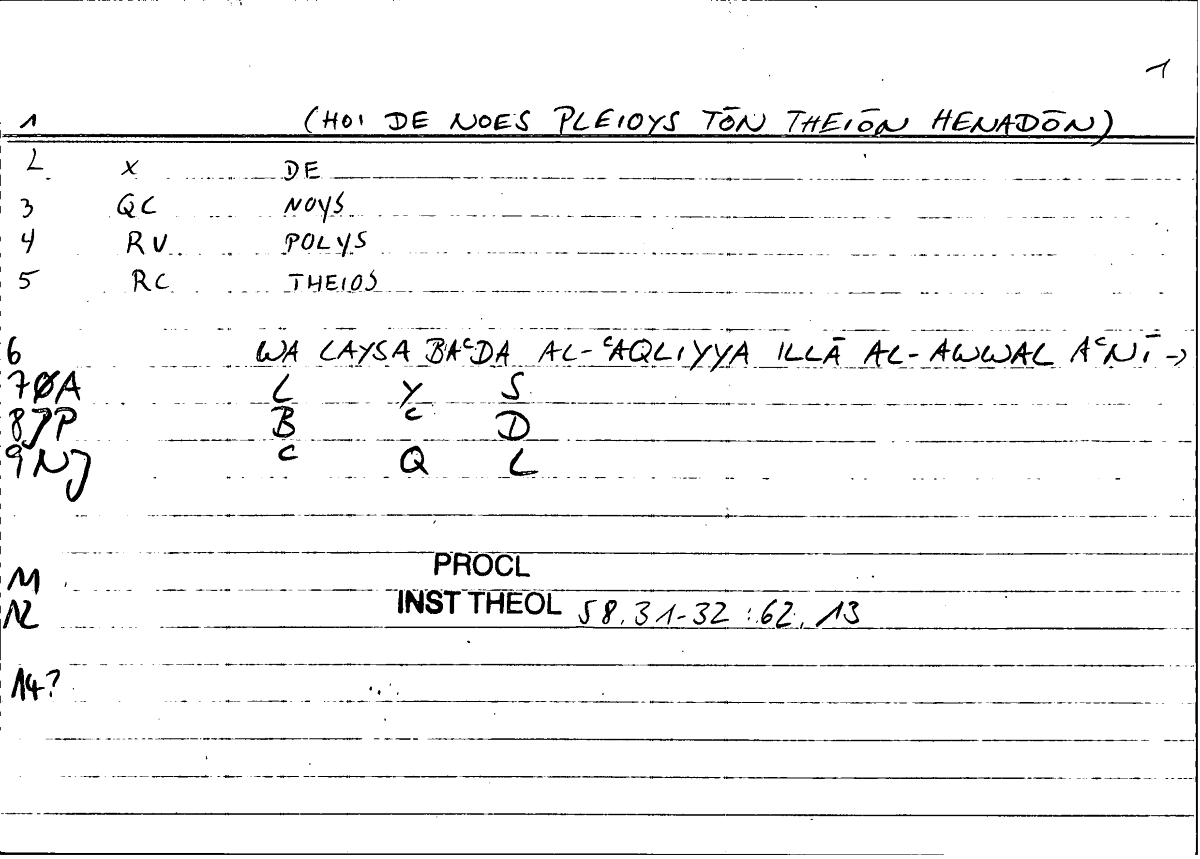 1
1 (HOI DE NOES PLEIOYS TŌN THEIŌN HENADŌN)
2 X DE
3 QC NOYS
4 RV POLYS
5 RC THEIOS
6 WA LAYSA BAᶜDA AL-ᶜAQLIYYA ILLĀ AL-AWWAL AᶜNĪ →
7ØA L Y S
8JP B ᶜ D
9NJ ᶜ Q L
11 PROCL
12 INST THEOL 58.31-32 :62.13
14?